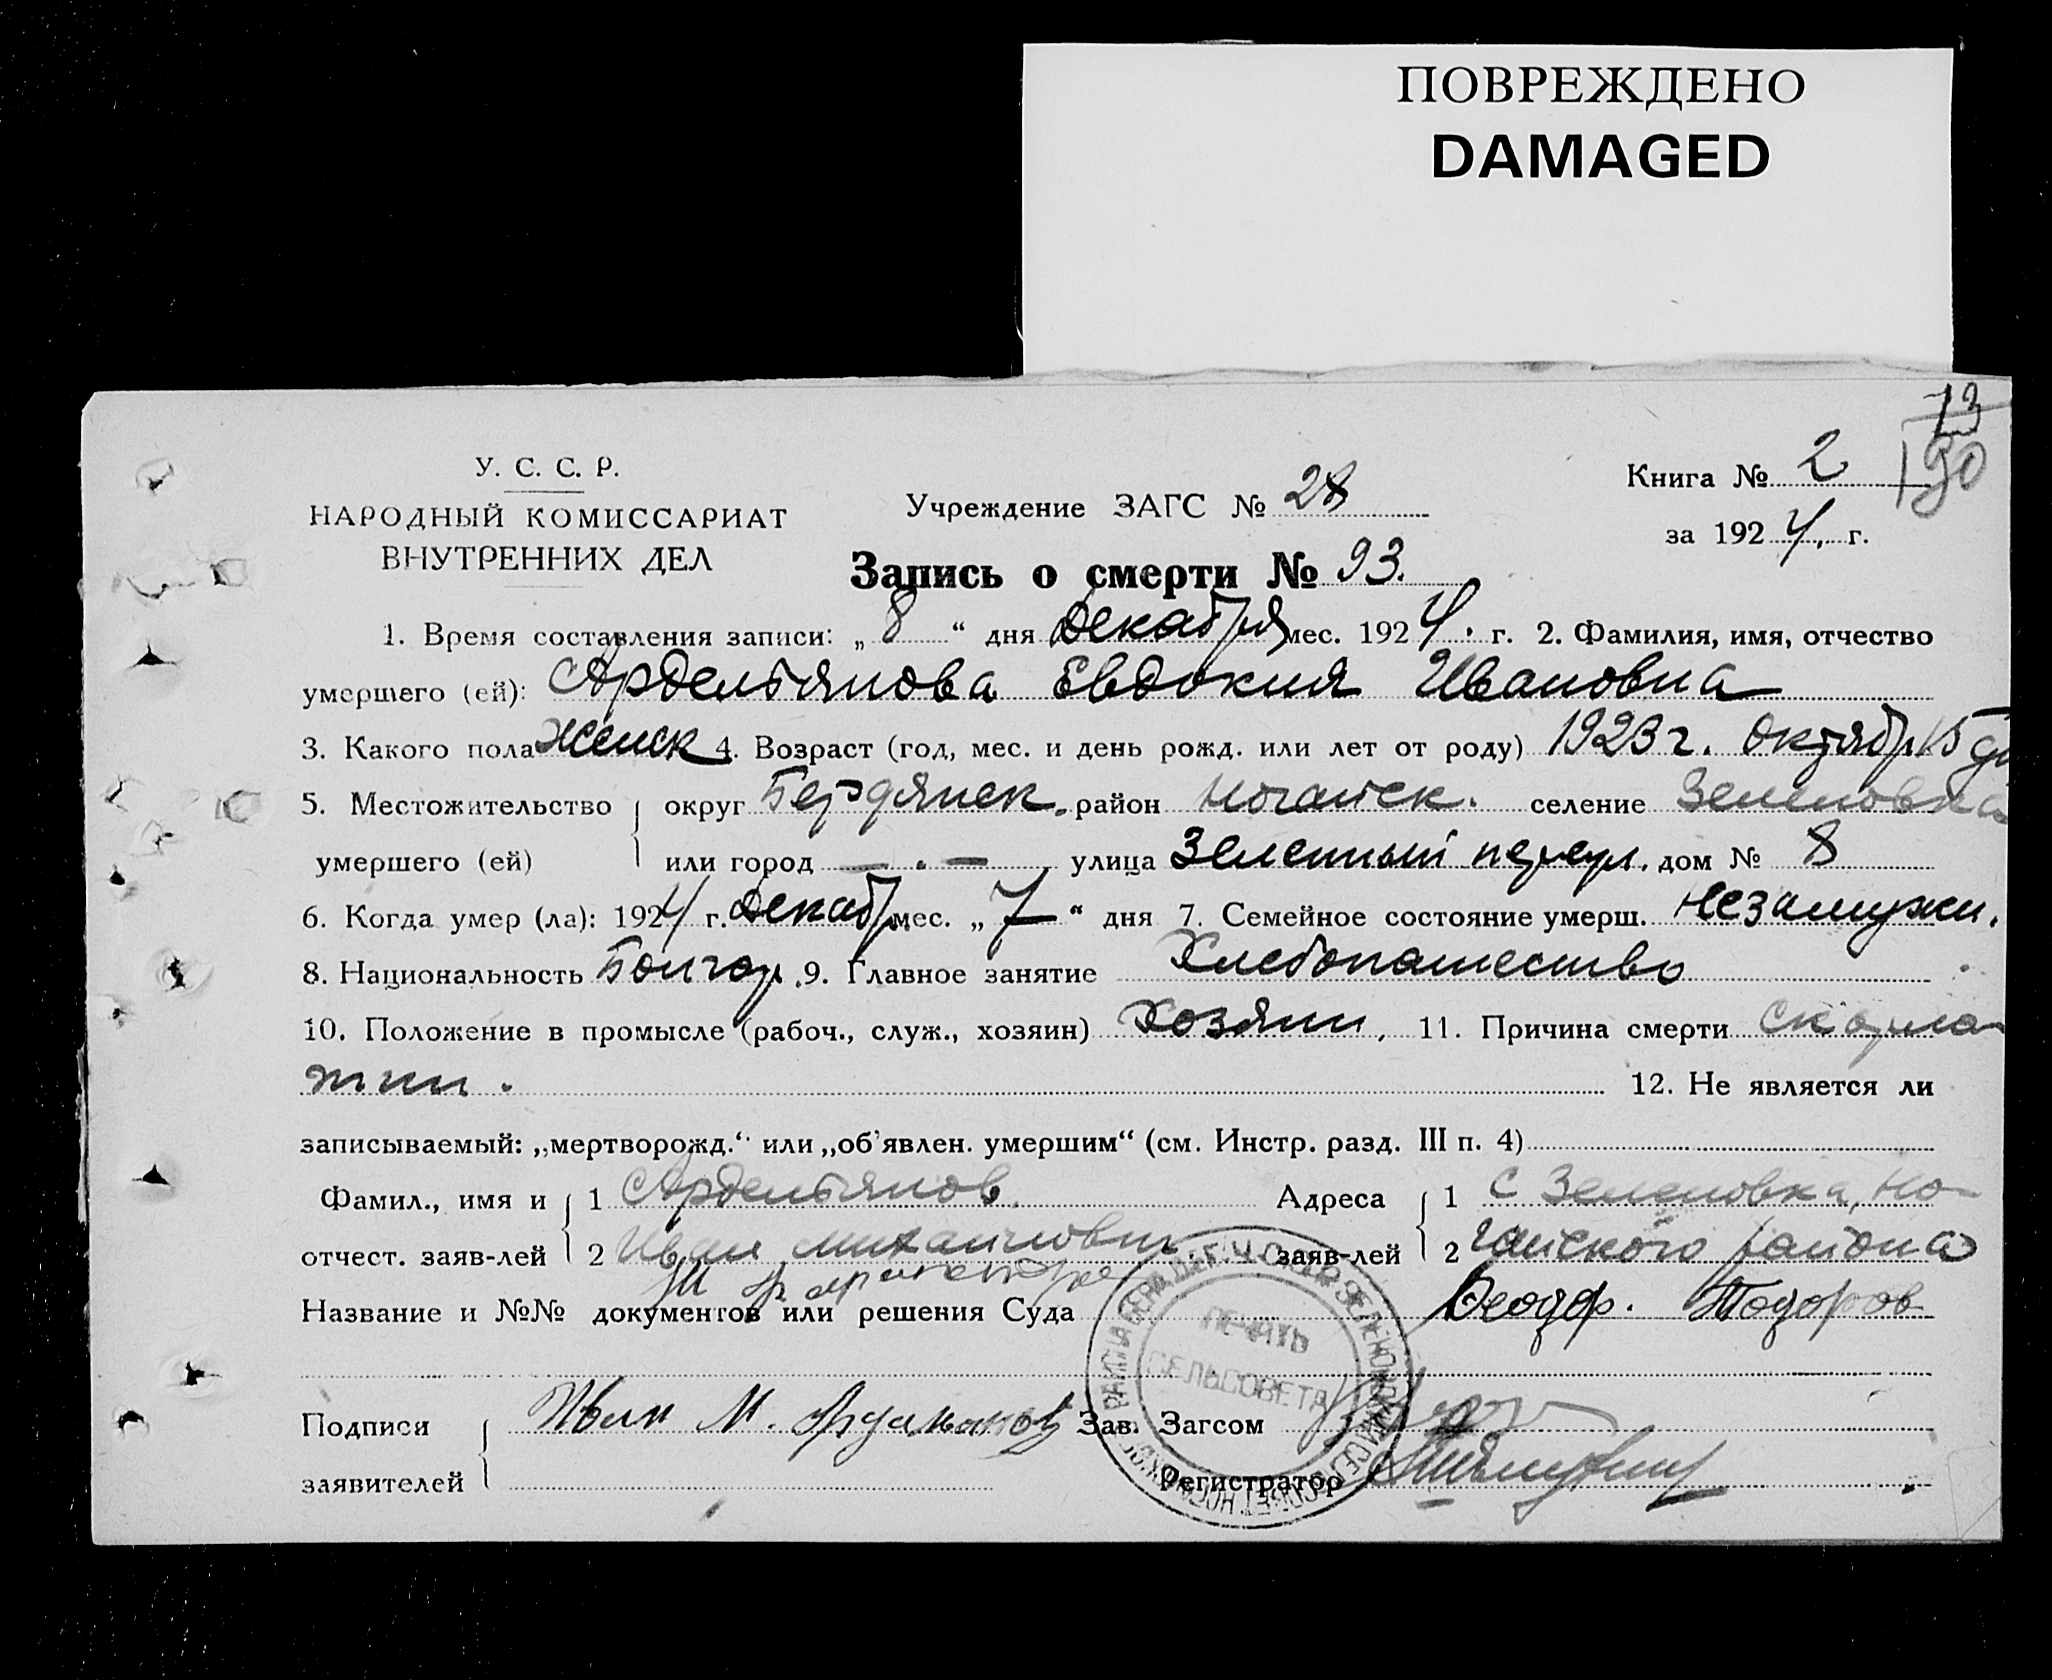 ПОВРЕЖДЕНО
DAMAGED
73
190
У. С. С. Р.
НАРОДНЫЙ КОМИССАРИАТ
ВНУТРЕННИХ ДЕЛ
Учреждение ЗАГС № 28
Книга № 2
за 1924. г.
Запись о смерти № 93.
1. Время составления записи: „8“ дня Декабря мес. 1924. г. 2. Фамилия, имя, отчество
умершего (ей): Ардельянова Евдокия Ивановна
3. Какого пола Женск 4. Возраст (год, мес. и день рожд. или лет от роду) 1923 г. Октябр. 15
5. Местожительство округ Бердянск. район Ногайск. селение Зеленовка
умершего (ей) или город — . — улица Зеленный переул. дом № 8
6. Когда умер (ла): 1924 г. Декабр. мес. „7“ дня 7. Семейное состояние умерш. Незамужн.
8. Национальность Болгар. 9. Главное занятие Хлебопашество
10. Положение в промысле (рабоч., служ., хозяин) Хозяин, 11. Причина смерти Скарла-
тин.
12. Не является ли
записываемый: „мертворожд.“ или „об'явлен. умершим“ (см. Инстр. разд. III п. 4)
Фамил., имя и 1 Ардельянов Адреса 1 С Зеленовка, Но-
отчест. заяв-лей 2 Иван Михайлович заяв-лей 2 гайского района
Название и №№ документов или решения Суда Феодор. Тодоров
ПЕЧАТЬ
СЕЛЬСОВЕТА
Подписи Иван М. Арделянов Зав. Загсом
заявителей Регистратор